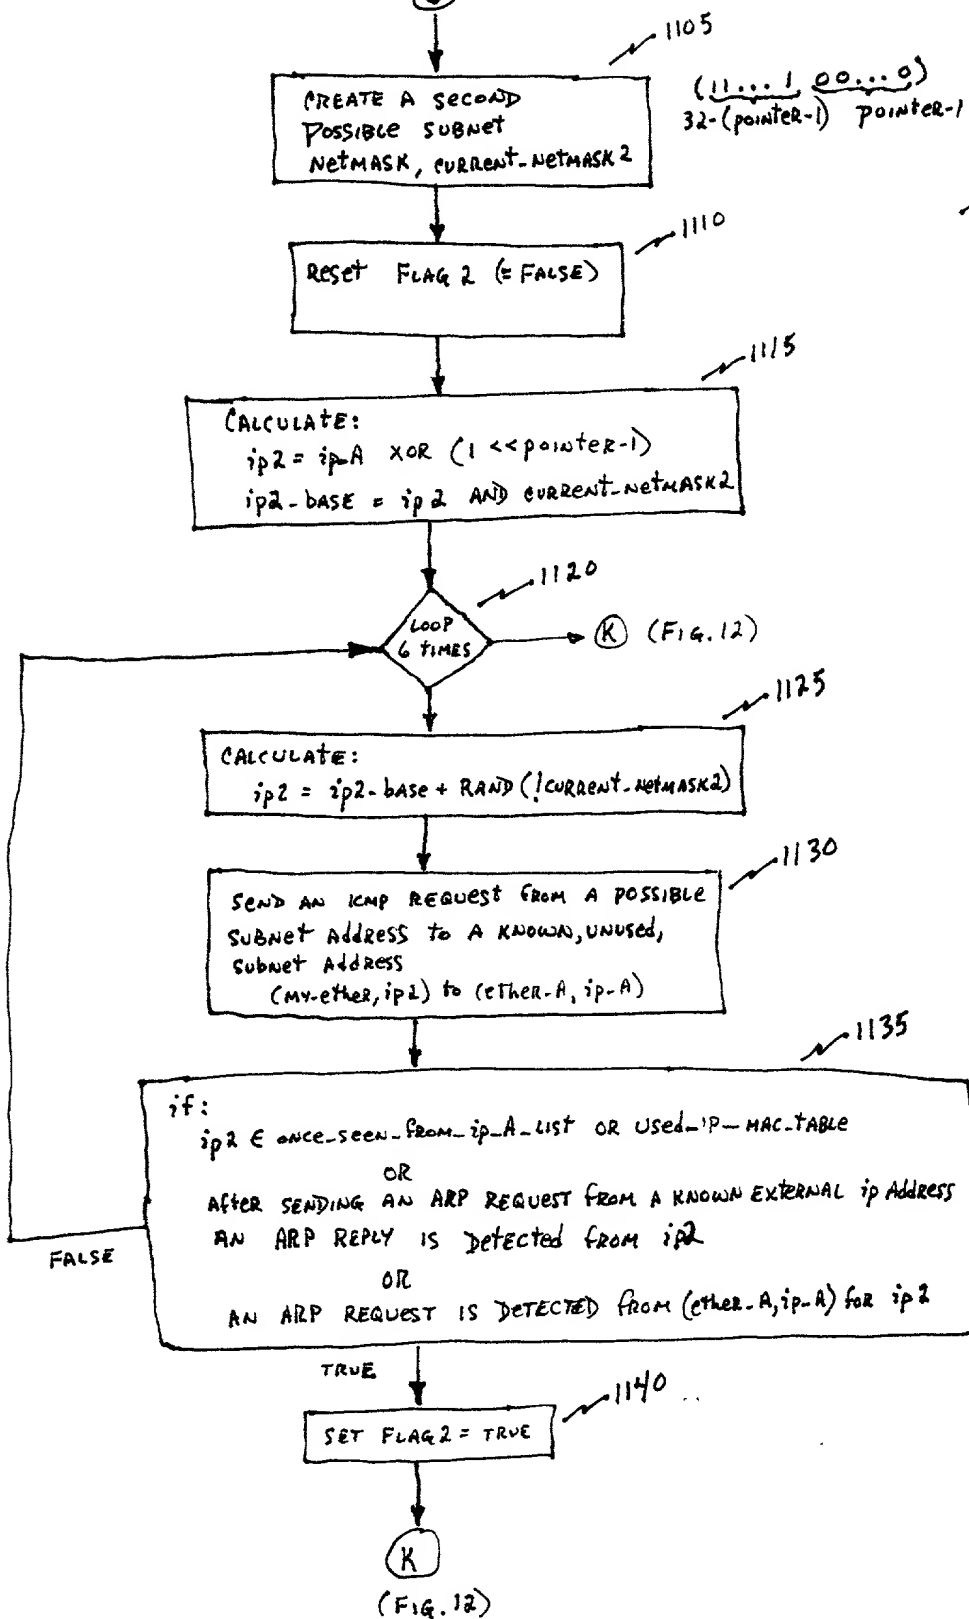 1105
(11...1 00...0)
32-(pointer-1) pointer-1
CREATE A SECOND
POSSIBLE SUBNET
NETMASK, CURRENT-NETMASK2
1110
Reset FLAG 2 (= FALSE)
1115
CALCULATE:
ip2 = ip-A XOR (1 << pointer-1)
ip2-base = ip2 AND CURRENT-NETMASK2
1120
LOOP
6 TIMES
K (FIG. 12)
1125
CALCULATE:
ip2 = ip2-base + RAND (!CURRENT-NETMASK2)
1130
SEND AN ICMP REQUEST FROM A POSSIBLE
SUBNET ADDRESS TO A KNOWN, UNUSED,
SUBNET ADDRESS
(MY-ether, ip2) to (ether-A, ip-A)
1135
if:
ip2 ∈ once_seen_from_ip_A_LIST OR USED_IP_MAC_TABLE
OR
AFTER SENDING AN ARP REQUEST FROM A KNOWN EXTERNAL ip Address
AN ARP REPLY IS DETECTED FROM ip2
OR
AN ARP REQUEST IS DETECTED FROM (ether-A, ip-A) for ip2
FALSE
TRUE
1140
SET FLAG 2 = TRUE
K
(FIG. 12)